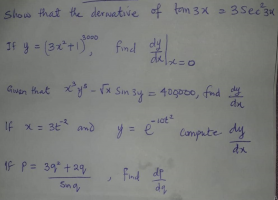 Show that the derivative of tan 3x = 3 Sec² 3x
If y = (3x² + 1)³⁰⁰⁰, find dy/dx |ₓ₌₀
Given that x³y⁸ - √x Sin 3y = 400000, find dy/dx
If x = 3t⁻² and y = e^(-10t²) compute dy/dx
If P = (3q² + 2q)/Sin q, Find dp/dq